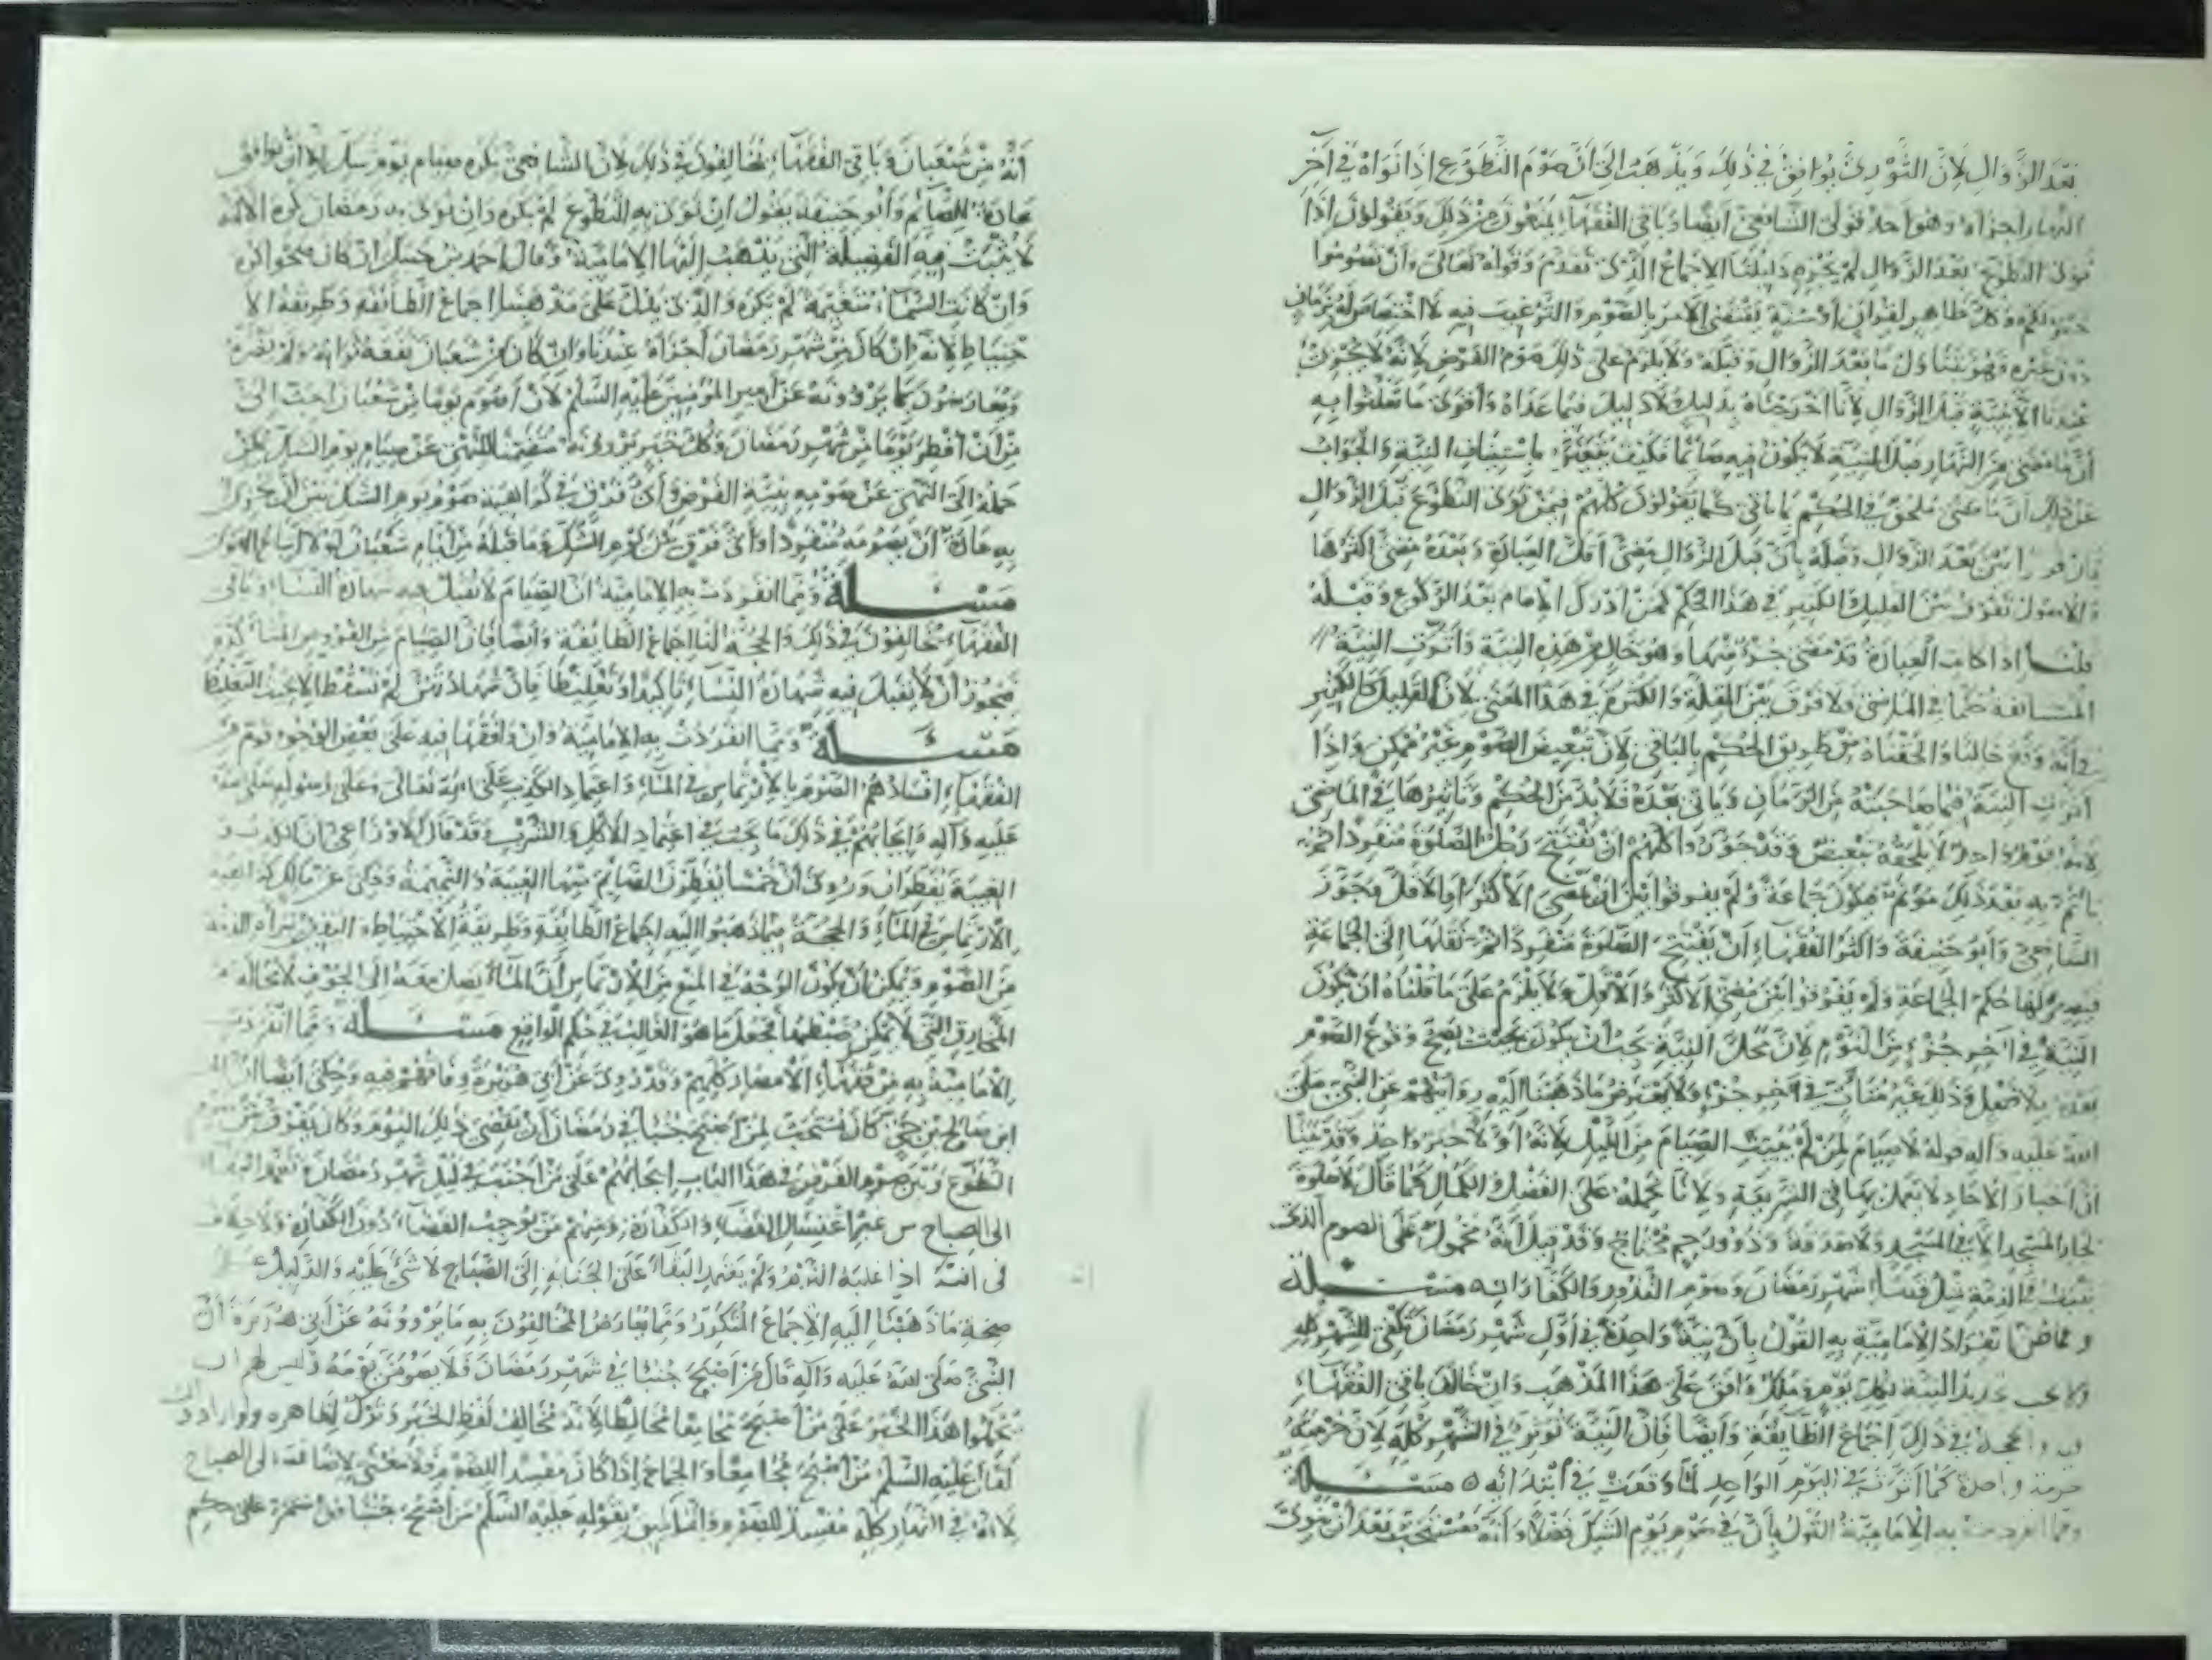 بعد الزوال لأن الثوري يوافق في ذلك ويذهب إلى أن صوم التطوع إذا نواه في آخر
النهار أجزاه وهو أحد قولي الشافعي أيضا وباقي الفقهاء يمنعون من ذلك ويقولون إذا
نوى التطوع بعد الزوال لم يجزه دليلنا الإجماع الذي تقدم وقوله تعالى وأن تصوموا
خير لكم وكل ظاهر لقرآن أو سنة يقتضي الأمر بالصوم والترغيب فيه لا اختصاص له بزمان
دون غيره فهو يتناول ما بعد الزوال وقبله ولا يلزم على ذلك صوم الفرض لأنه لا يجزئ
عندنا إلا بنية قبل الزوال لأنا أخرجناه بدليل ولا دليل فيما عداه وأقوى ما تعلقوا به
أن ما مضى من النهار قبل النية لا يكون فيه صائما فكيف يتغير باستيناف النية والجواب
عن ذلك أن ما مضى ملحق في الحكم بما يأتي كما يقولون كلهم فيمن نوى التطوع قبل الزوال
فإن فرقوا بين بعد الزوال وقبله بأن قبل الزوال مضى أقل العبادة وبعده مضى أكثرها
والأصول تفرق بين القليل والكثير في هذا الحكم كمن أدرك الإمام بعد الركوع وقبله
قلنا إذا كانت العبادة قد مضى جزء منها وهو خال من هذه النية وأثرت النية
المستأنفة حكما في الماضي فلا فرق بين القلة والكثرة في هذا المعنى لأن القليل كالكثير
في أنه وقع خاليا وألحقناه من طريق الحكم بالباقي لأن تبعيض الصوم غير ممكن وإذا
أثرت النية فيما صاحبته من الزمان وما يأتي بعده فلا بد من الحكم وتأثيرها في الماضي
لأنه يوم واحد لا يلحقه تبعيض وقد جوزوا كلهم أن يفتتح رجل الصلوة منفردا ثم
يأتم به بعد ذلك مؤتم فيكون جماعة ولم يفرقوا بين أن يمضي الأكثر أو الأقل وجوز
الشافعي وأبو حنيفة وأكثر الفقهاء أن يفتتح الصلوة منفردا ثم ينقلها إلى الجماعة
فيصير لها حكم الجماعة ولم يفرقوا بين مضي الأكثر والأقل ولا يلزم على ما قلناه أن يكون
النية في آخر جزء من اليوم لأن محل النية يجب أن يكون بحيث يصح وقوع الصوم
بعده بلا فصل وذلك غير متأت في آخر جزء ولا يعترض ما ذهبنا إليه روايتهم عن النبي صلى
الله عليه وآله قوله لا صيام لمن لم يبيت الصيام من الليل لأنه أولا خبر واحد وقد بينا
أن أخبار الآحاد لا يعمل بها في الشريعة ولأنا نحمله على الفضل والكمال كما قال لا صلوة
لجار المسجد إلا في المسجد ولا صدقة وذو رحم محتاج وقد قيل أنه محمول على الصوم الذي
يثبت في الذمة مثل قضاء شهر رمضان وصوم النذور والكفارات مسئلة
ومما ظن انفراد الإمامية به القول بأن نية واحدة في أول شهر رمضان تكفي للشهر كله
ولا يجب تجديد النية لكل يوم ومالك وافق على هذا المذهب وإن خالف باقي الفقهاء
فيه والحجة في ذلك إجماع الطايفة وأيضا فإن النية تؤثر في الشهر كله لأن حرمته
حرمة واحدة كما أثرت في اليوم الواحد لما وقعت في ابتدائه مسئلة
ومما انفردت به الإمامية القول بأن في صوم يوم الشك فضلا وأنه يستحب بعد أن ينوي
أنه من شعبان وباقي الفقهاء يخالفون في ذلك لأن الشافعي يكره صيام يوم شك إلا أن يوافق
عادة للصائم وأبو حنيفة يقول إن نوى به التطوع لم يكره وإن نوى به رمضان كره لأنه
لا يثبت فيه الفضيلة التي يذهب إليها الإمامية وقال أحمد بن حنبل إن كان صحوا كره
وإن كانت السماء متغيمة لم يكره والذي يدل على مذهبنا إجماع الطائفة وطريقة الا
حتياط لأنه إن كان من شهر رمضان أجزأه عندنا وإن كان من شعبان نفعه ثوابه ولم يضره
ويعارضون بما يروونه عن أمير المؤمنين عليه السلم لأن أصوم يوما من شعبان أحب إلي
من أن أفطر يوما من شهر رمضان وكل خبر يروونه متضمنا للنهي عن صيام يوم الشك يمكن
حمله إلى النهي عن صومه بنية الفرض وأي فرق في كراهية صوم يوم الشك بين أن يجري
به عادة أو أن يصومه منفردا وأي فرق بين يوم الشك وما قبله من أيام شعبان لولا اتباع الهوى
مسئلة ومما انفردت به الإمامية أن الصيام لا يقبل فيه شهادة النساء وباقي
الفقهاء يخالفون في ذلك والحجة لنا إجماع الطائفة وأيضا فإن الصيام من الفروض المتأكدة
فيجوز أن لا يقبل فيه شهادة النساء تأكيدا وتغليظا فإن شهادتهن لم تسقط إلا بحيث التغليظ
مسئلة ومما انفردت به الإمامية وإن وافقها فيه على بعض الوجوه قوم من
الفقهاء إفسادهم الصوم بالارتماس في الماء واعتماد الكذب على الله تعالى وعلى رسوله صلى الله
عليه وآله وإيجابهم في ذلك ما يجب في اعتماد الأكل والشرب وقد قال الأوزاعي إن الكذب و
الغيبة يفطران وروى أن خمسا يفطرن الصائم منها الغيبة والنميمة وحكي عن مالك كراهية
الارتماس في الماء والحجة فيما ذهبوا إليه إجماع الطائفة وطريقة الاحتياط و اليقين ببراءة الذمة
من الصوم ويمكن أن يكون الوجه في المنع من الارتماس أن الماء يصل معه إلى الجوف لا محالة من
المخارق التي لا يمكن ضبطها فجعل ما هو الغالب في حكم الواقع مسئلة ومما انفردت
الإمامية به من فقهاء الأمصار كلهم وقد روي عن أبي هريرة وفاقهم فيه وحكي أيضا أن الحسن
ابن صالح بن حي كان يستحب لمن أصبح جنبا في رمضان أن يقضي ذلك اليوم وكان يفرق بين صوم
التطوع وبين صوم الفرض في هذا الباب إيجابهم على من أجنب في ليل شهر رمضان وتعمد البقاء
إلى الصباح من غير اغتسال القضاء والكفارة ومنهم من يوجب القضاء دون الكفارة ولا خلاف
في أنه إذا غلبه النوم ولم يتعمد البقاء على الجنابة إلى الصباح لا شيء عليه والدليل على
صحة ما ذهبنا إليه الإجماع المتكرر ومما يعارض المخالفون به ما يروونه عن أبي هريرة أن
النبي صلى الله عليه وآله قال من أصبح جنبا في شهر رمضان فلا يصومن يومه وليس لهم أن
يحملوا هذا الخبر على من أصبح مجامعا مخالطا لأنه يخالف لفظ الخبر وترك لظاهره ولو أراد ذلك
لقال عليه السلم من أصبح مجامعا والجماع إذا كان مفسدا للصوم فلا معنى لإضافته إلى الصباح
لأنه في النهار كله مفسد للصوم وإنما يليق بقوله عليه السلم من أصبح جنبا من استمر على حكم